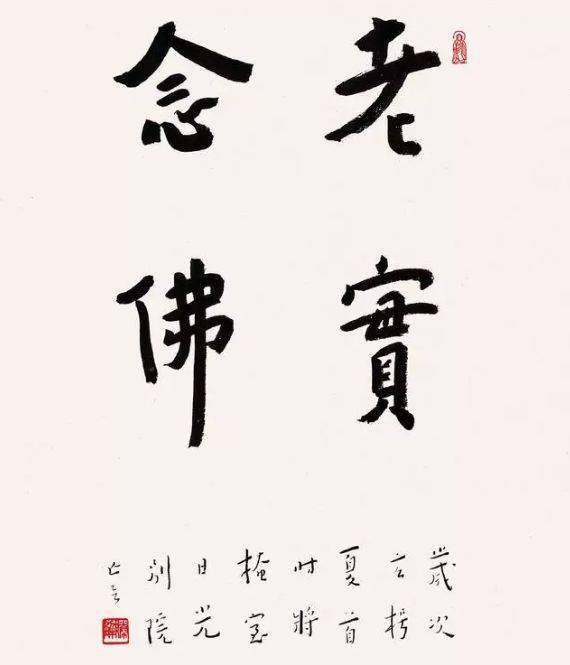 老實
念佛
歲次
玄枵
夏首
时將
掩室
日光
別院
亡言